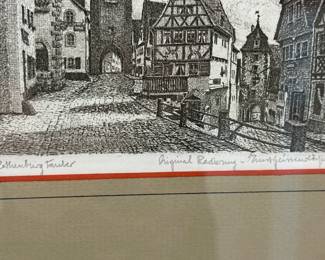 Rothenburg Tauber
Original Radierung -